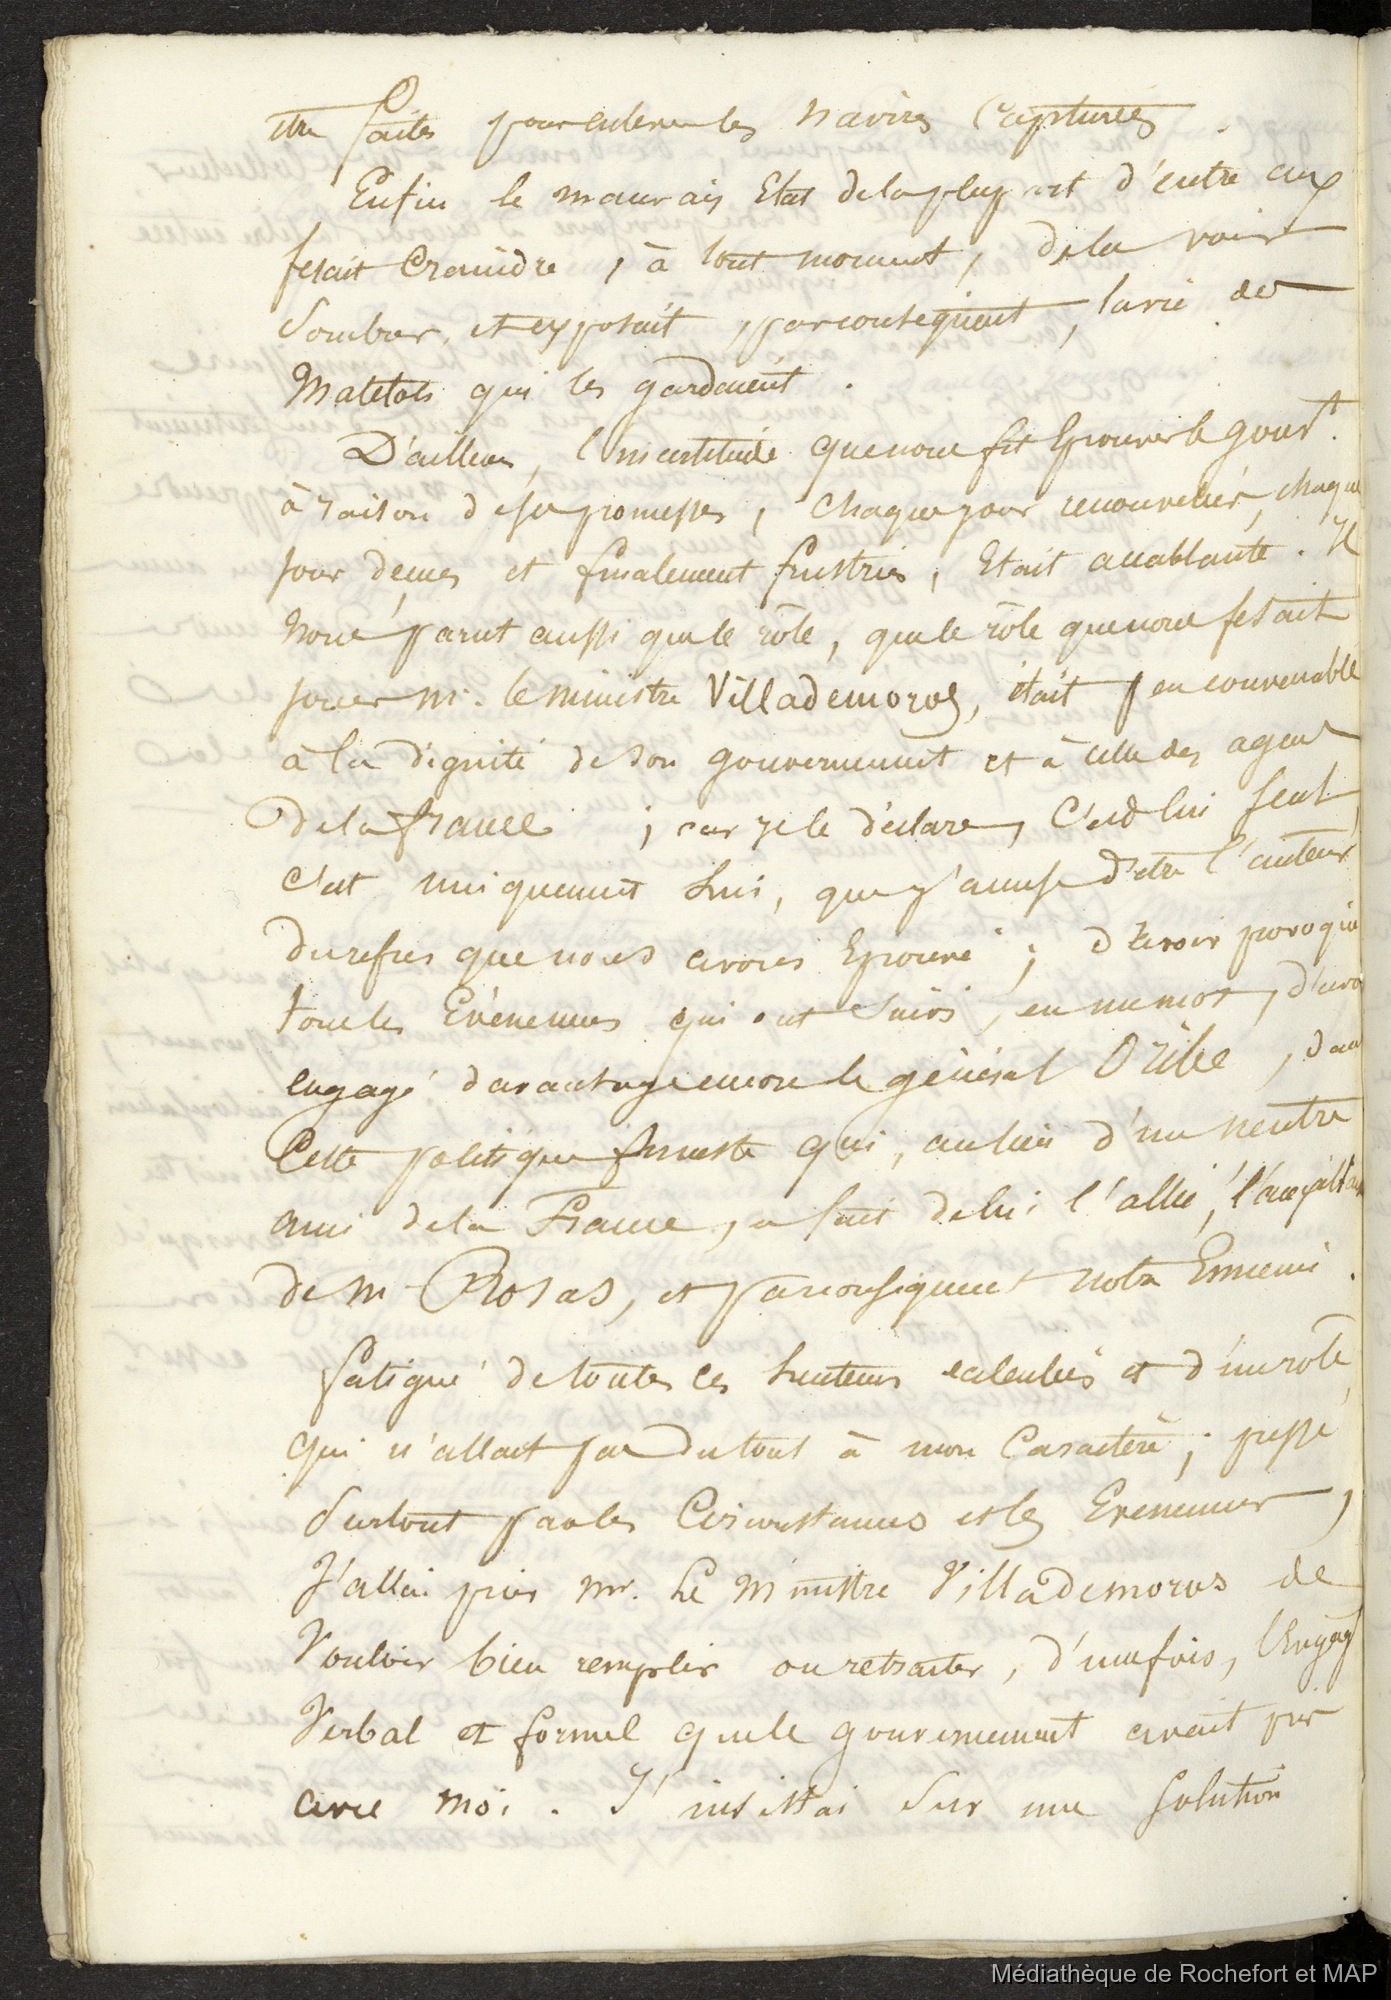 être faites pour enlever les navires capturés.
Enfin le mauvais Etat de la plupart d'entre eux
fesait craindre, à tout moment, de la voir
sombrer, et exposait, par consequent, la vie des
Matelots qui les gardaient.
D'ailleurs, l'incertitude que nous fit Eprouver le gouvt.
à raison de ses promesses, chaque jour renouvelées, chaque
jour deçues et finalement frustrées, Etait accablante. Il
nous parut aussi que le rôle, que le rôle que nous fesait
jouer mr. le ministre Villademoros, était peu convenable
à la dignité de son gouvernement et à celle des agents
de la france ; car je le déclare, c'est lui seul,
c'est uniquement lui, que j'accuse d'être l'auteur
du refus que nous avons Eprouvé ; d'avoir provoqué
tous les Evènemens qui ont suivi, en un mot, d'avoir
engagé davantage encore le général Oribe, dans
cette politique funeste qui, au lieu d'un neutre
ami de la France, a fait de lui l'allié,
de mr Rosas, et par consequent notre Ennemi.
Fatigué de toutes ces lenteurs calculées et d'un rôle,
qui n'allait pas du tout à mon Caractère ; pressé
surtout par les Circonstances et les Evenemens,
J'allai prier mr. Le Ministre Villademoros de
Vouloir bien remplir ou retracter, d'une fois, l'Engagt
Verbal et formel que le gouvernement avait pris
avec moi. J'insistai sur une solution
Médiathèque de Rochefort et MAP